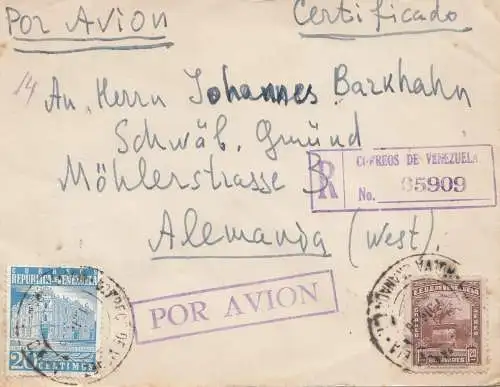 Por Avion
Certificado
14
An Herrn Johannes Barkhahn
Schwäb. Gmünd
Möhlerstrasse 3
Alemania (West).
R
CORREOS DE VENEZUELA
No. 35909
POR AVION
CORREOS
REPUBLICA DE VENEZUELA
20 CENTIMOS
CORREO AEREO
BOLIVARES